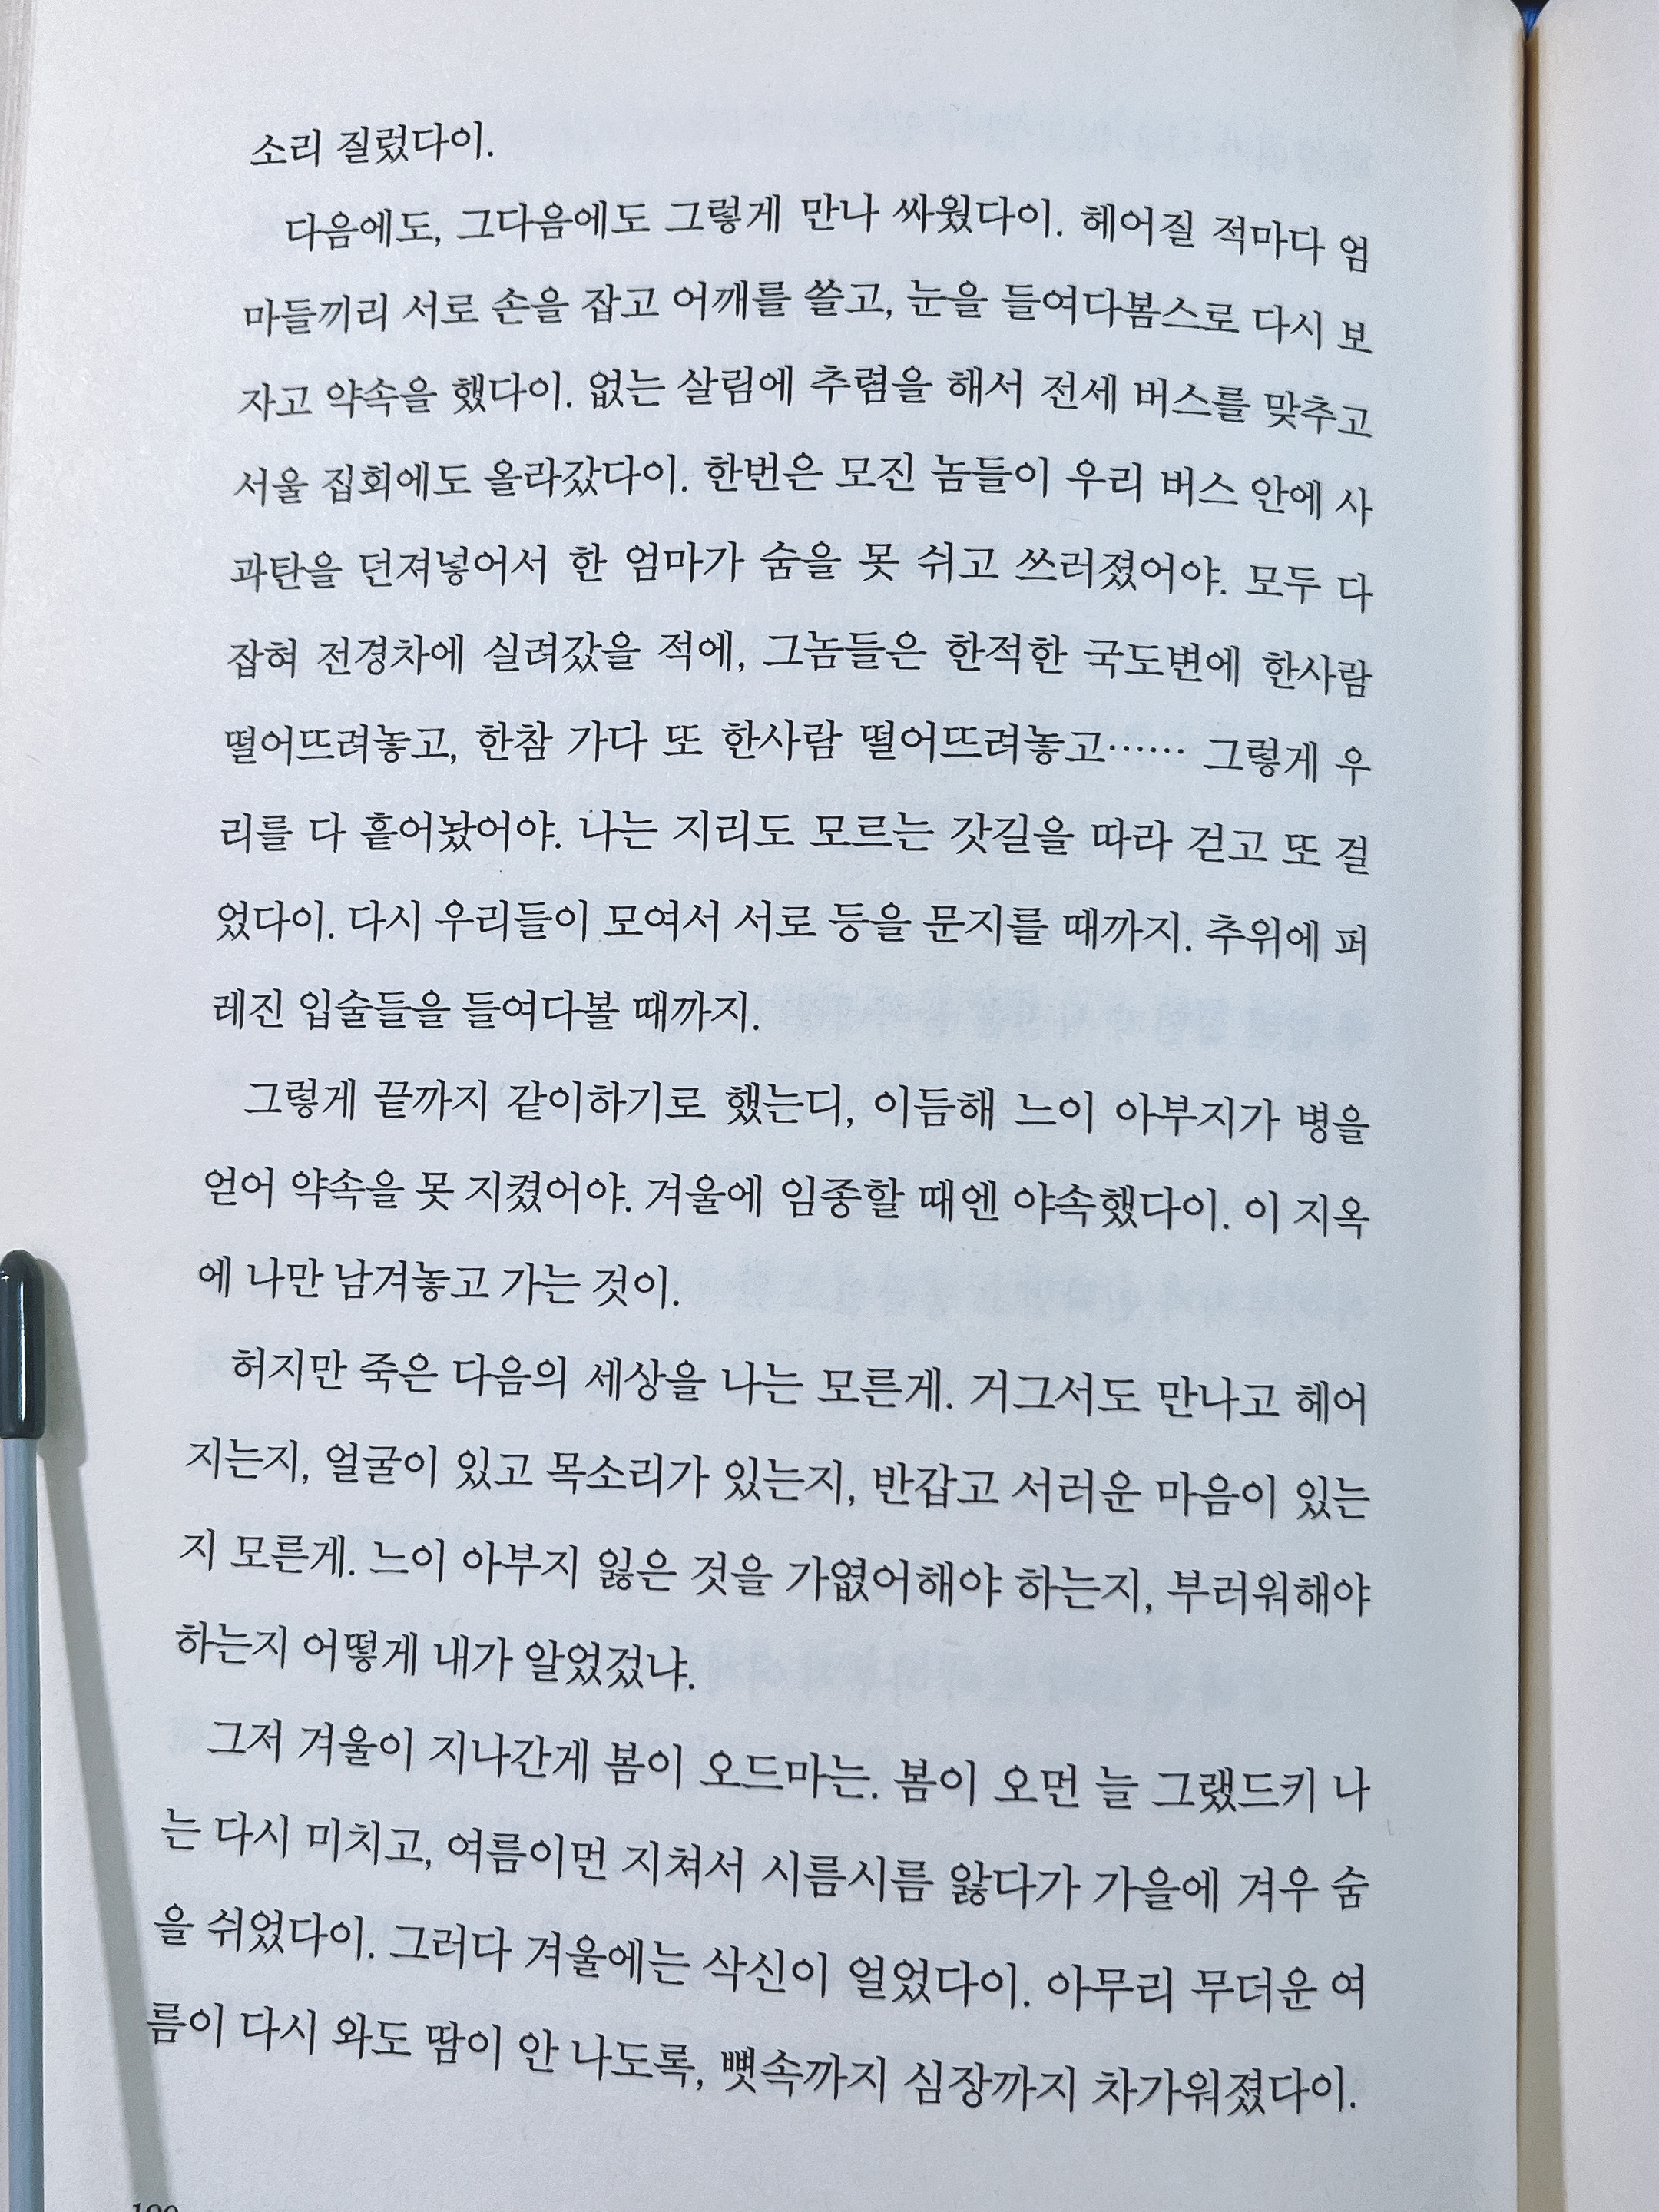 소리 질렀다이.
다음에도, 그다음에도 그렇게 만나 싸웠다이. 헤어질 적마다 엄
마들끼리 서로 손을 잡고 어깨를 쓸고, 눈을 들여다봄스로 다시 보
자고 약속을 했다이. 없는 살림에 추렴을 해서 전세 버스를 맞추고
서울 집회에도 올라갔다이. 한번은 모진 놈들이 우리 버스 안에 사
과탄을 던져넣어서 한 엄마가 숨을 못 쉬고 쓰러졌어야. 모두 다
잡혀 전경차에 실려갔을 적에, 그놈들은 한적한 국도변에 한사람
떨어뜨려놓고, 한참 가다 또 한사람 떨어뜨려놓고…… 그렇게 우
리를 다 흩어놨어야. 나는 지리도 모르는 갓길을 따라 걷고 또 걸
었다이. 다시 우리들이 모여서 서로 등을 문지를 때까지. 추위에 퍼
레진 입술들을 들여다볼 때까지.
그렇게 끝까지 같이하기로 했는디, 이듬해 느이 아부지가 병을
얻어 약속을 못 지켰어야. 겨울에 임종할 때엔 야속했다이. 이 지옥
에 나만 남겨놓고 가는 것이.
허지만 죽은 다음의 세상을 나는 모른게. 거그서도 만나고 헤어
지는지, 얼굴이 있고 목소리가 있는지, 반갑고 서러운 마음이 있는
지 모른게. 느이 아부지 잃은 것을 가엾어해야 하는지, 부러워해야
하는지 어떻게 내가 알었겄냐.
그저 겨울이 지나간게 봄이 오드마는. 봄이 오먼 늘 그랬드키 나
는 다시 미치고, 여름이먼 지쳐서 시름시름 앓다가 가을에 겨우 숨
을 쉬었다이. 그러다 겨울에는 삭신이 얼었다이. 아무리 무더운 여
름이 다시 와도 땀이 안 나도록, 뼛속까지 심장까지 차가워졌다이.